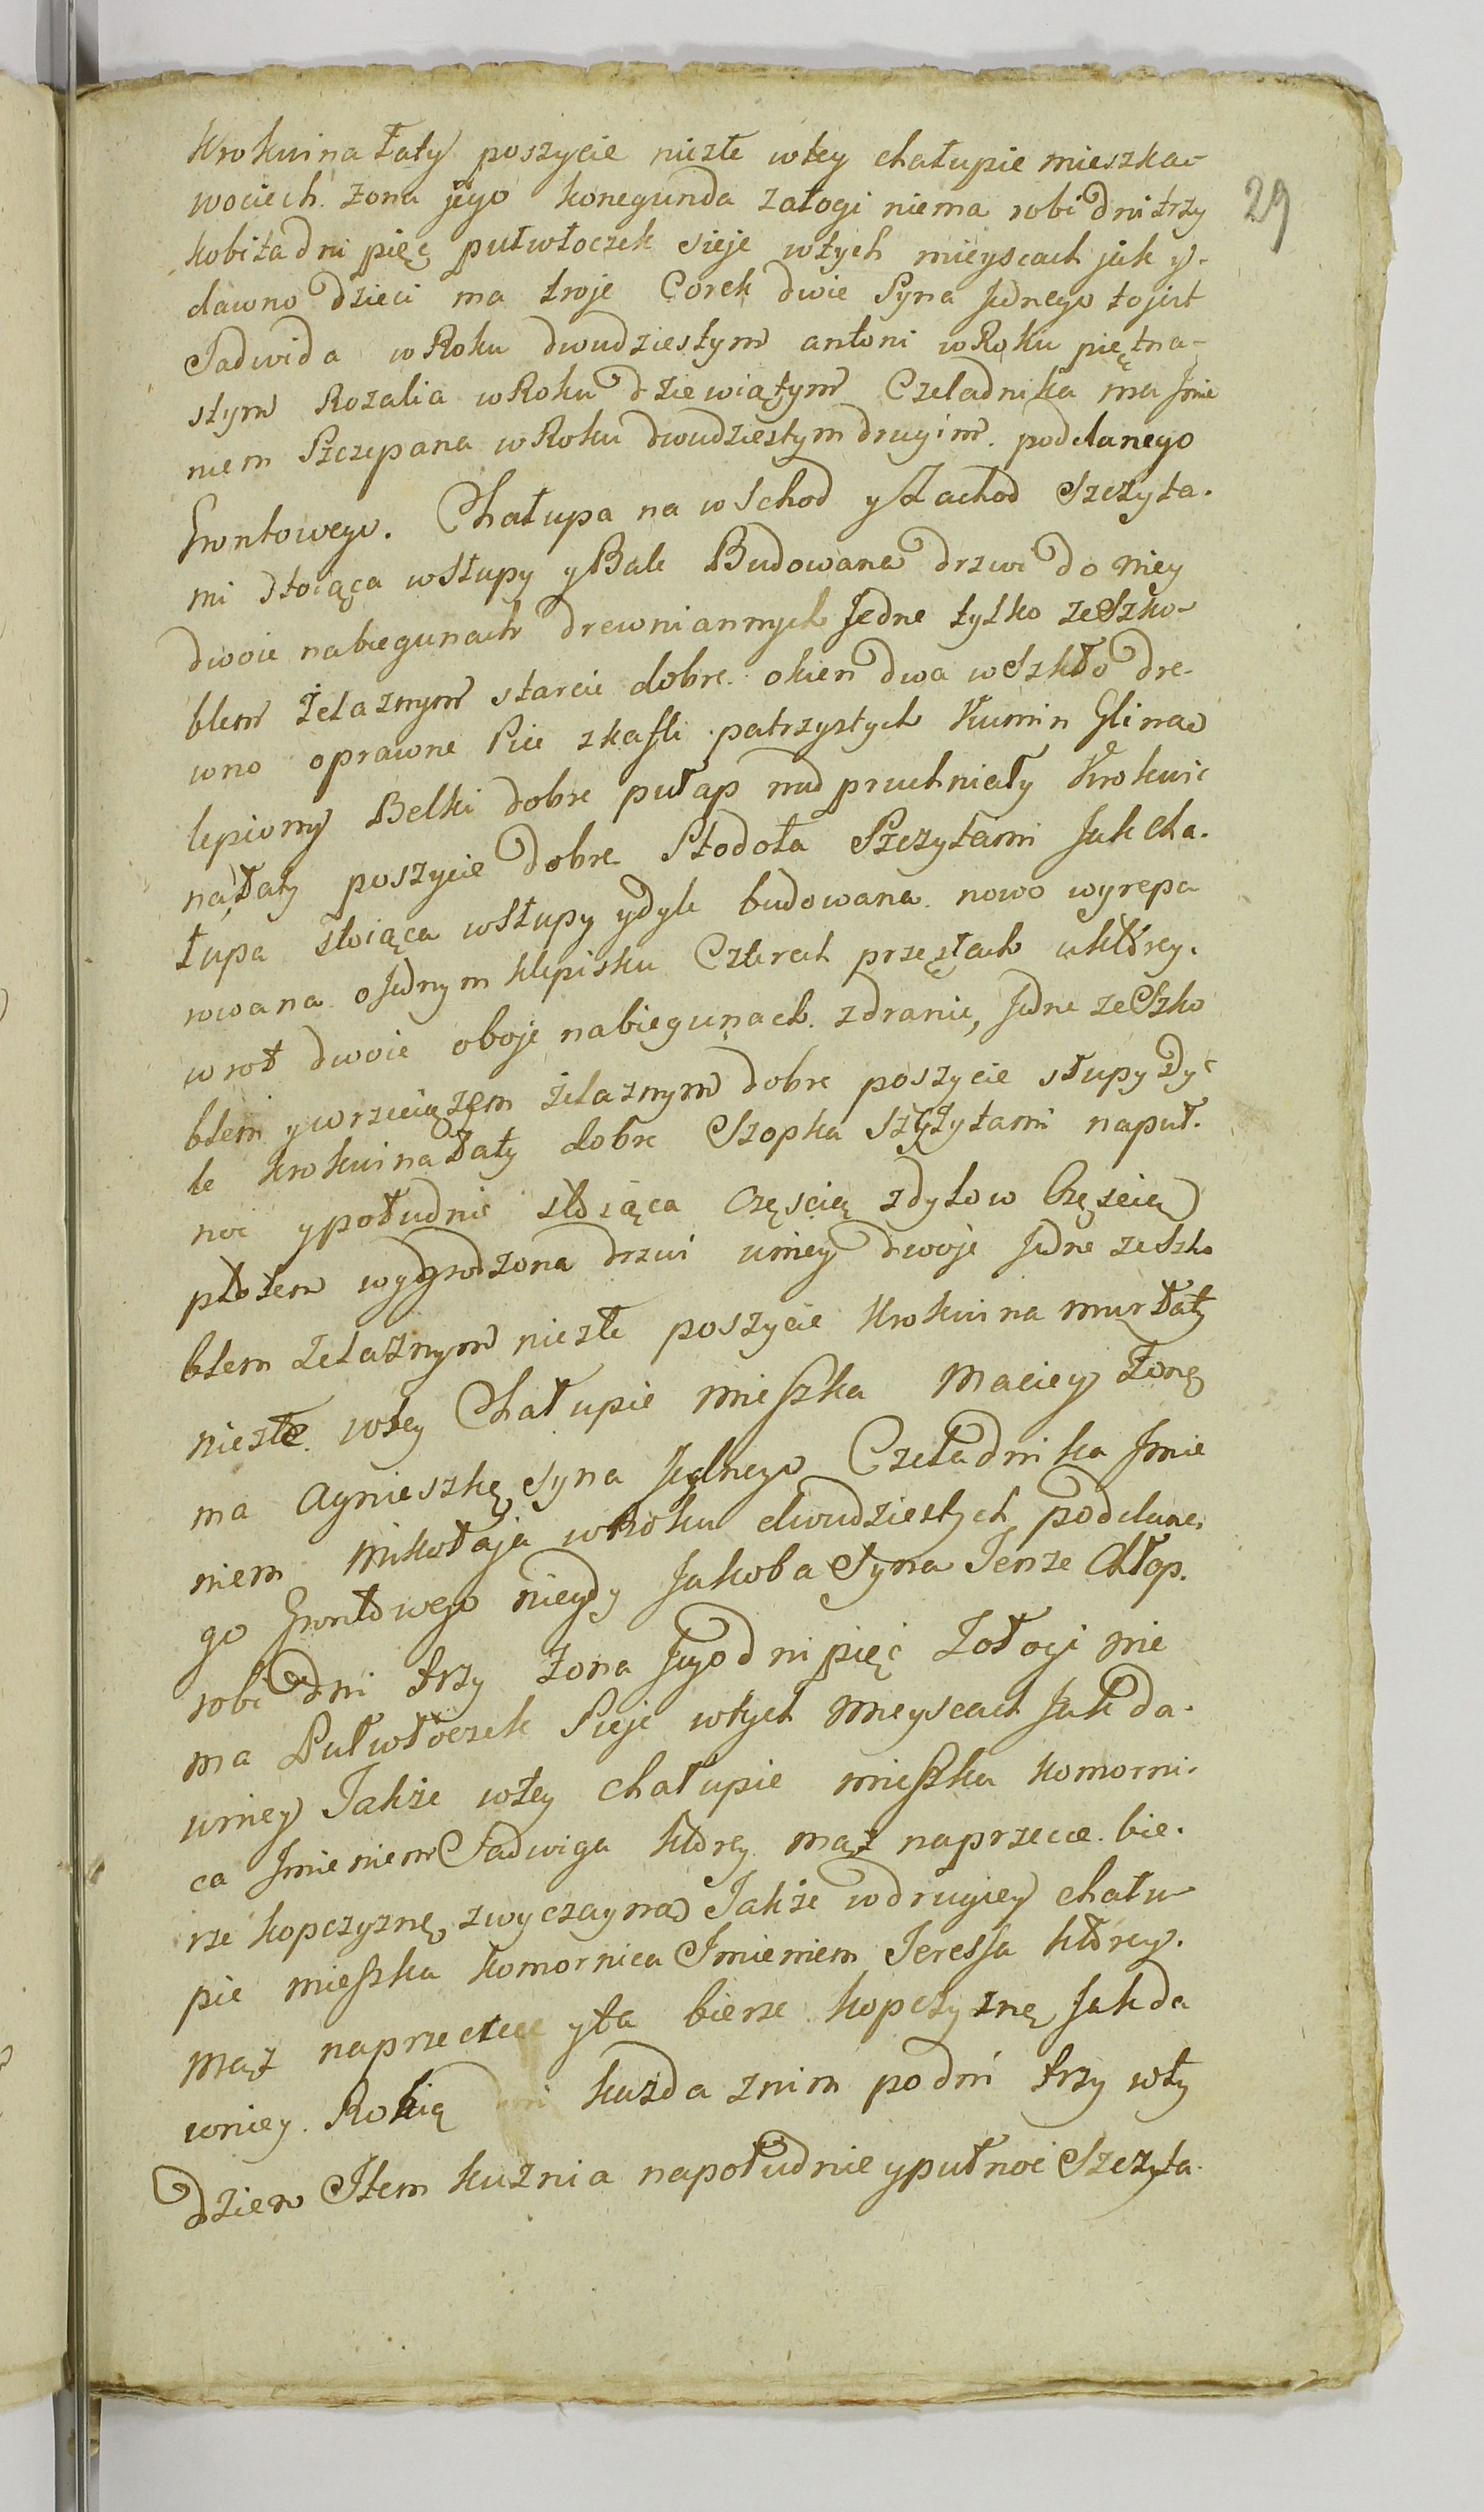 Krokwi na Łaty poszycie niezłe wtey chałupie mieszka-
wociech. żona jego konegunda załogi niema robi dni trzy
kobita dni pięć pułwłoczek sieje wtych mieyscach jak y-
dawno dzieci ma troje Corek dwie Syna Jednego to jest
Jadwida w Roku dwudziestym antoni w Roku piętna-
stym Rozalia w Roku dziewiątym Czeladnika ma Jmie
niem Szczepana w Roku dwudziestym drugim. poddanego
Grontowego. Chałupa na wschod y Zachod Szczyta-
mi stoiąca wsłupy y Bale Budowana drzwi do niey
dwoie nabiegunach drewniannych Jedne tylko ze Szko-
blem żelaznym starcie dobre. okien dwa wszkło dre-
wno oprawne Piec zkafli patrzystych Kumin Glina
lepiony Belki dobre pułap nad pruchniały Krokwie
na Łaty poszycie dobre Stodoła Szczytami Jak cha-
łupa stoiąca wsłupy y dyle budowana. nowo wyrepa
rowana o Jednym klepisku Czterech przęsłach uktórey.
wrot dwoie oboje nabiegunach. zdranic, Jedne ze Szko
blem y wrzeciązem żelaznym dobre poszycie słupy Dy-
le krokwi na Łaty dobre Szopka Szczytami napuł-
noc ypołudnie stoiąca Częscią zdylow Częscią
płotem wygrodzona drzwi uniey dwoje Jedne ze Szko
blem żelaznym niezłe poszycie Krokwi na mur Łaty
niezłe. wtey Chałupie mieszka Maciey Żonę
ma Agnieszkę Syna Jednego Czeladnika Jmie
niem Mikołaja w Roku dwudziestych poddane-
go Grontowego niegdy Jakoba Syna Tenze Chłop.
robi dni trzy żona Jego dni pięć Zołogi nie
ma Pułwłoczek Sieje wtych Mieyscach Jak da-
wniey Takze wtey chałupie mieszka komorni-
ca Jmieniem Jadwiga którey mąż naprzecie. bie-
rze kopczyznę zwyczayna Także wdrugiey chału-
pie mieszka komornica Jmieniem Teressa którey.
mąż naprzecie yta bierze kopczyznę Jak da
wniey. Robią dni kużda znim po dni trzy wty
dzien Jtem kuznia napołudnie ypułnoc Szczyta-
29